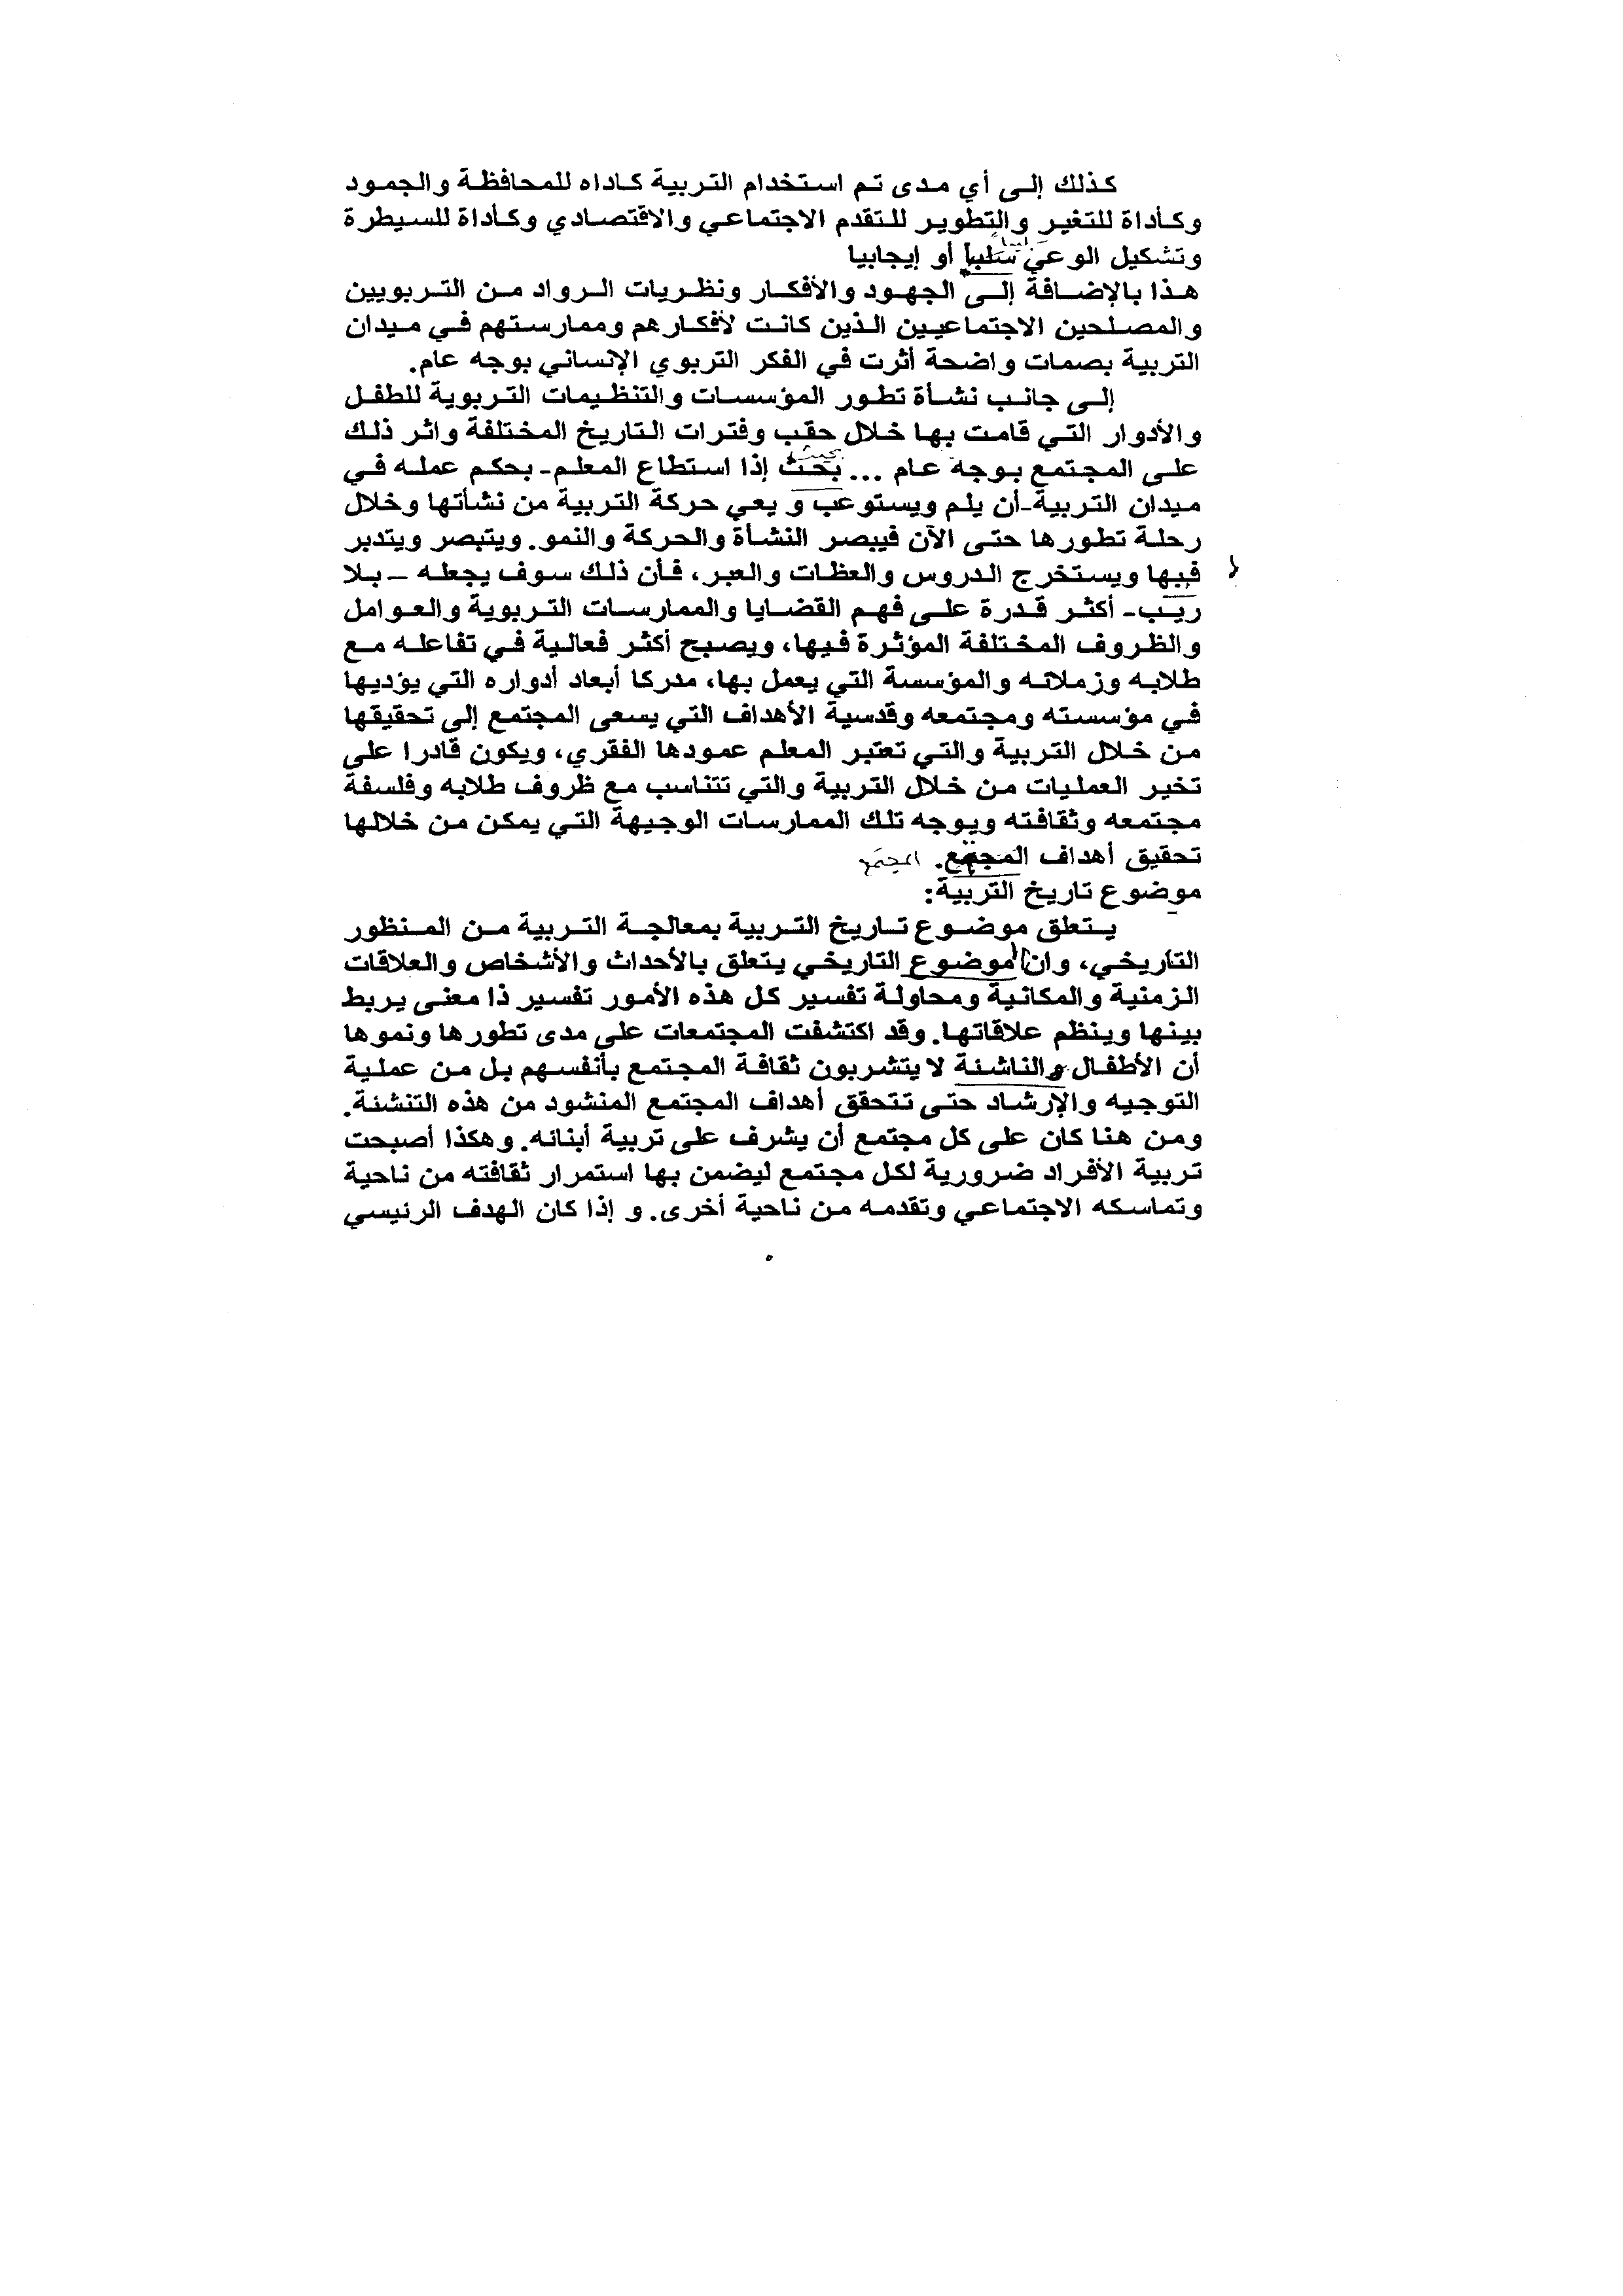 كذلك إلى أي مدى تم استخدام التربية كاداه للمحافظة والجمود
وكأداة للتغير والتطوير للتقدم الاجتماعي والاقتصادي وكأداة للسيطرة
وتشكيل الوعي سلبيا أو إيجابيا
هذا بالإضافة إلى الجهود والأفكار ونظريات الرواد من التربويين
والمصلحين الاجتماعيين الذين كانت لأفكارهم وممارستهم في ميدان
التربية بصمات واضحة أثرت في الفكر التربوي الإنساني بوجه عام.
إلى جانب نشأة تطور المؤسسات والتنظيمات التربوية للطفل
والأدوار التي قامت بها خلال حقب وفترات التاريخ المختلفة واثر ذلك
على المجتمع بوجه عام ... بحث إذا استطاع المعلم- بحكم عمله في
ميدان التربية-أن يلم ويستوعب و يعي حركة التربية من نشأتها وخلال
رحلة تطورها حتى الآن فيبصر النشأة والحركة والنمو. ويتبصر ويتدبر
فيها ويستخرج الدروس والعظات والعبر، فأن ذلك سوف يجعله – بلا
ريب- أكثر قدرة على فهم القضايا والممارسات التربوية والعوامل
والظروف المختلفة المؤثرة فيها، ويصبح أكثر فعالية في تفاعله مع
طلابه وزملائه والمؤسسة التي يعمل بها، مدركا أبعاد أدواره التي يؤديها
في مؤسسته ومجتمعه وقدسية الأهداف التي يسعى المجتمع إلى تحقيقها
من خلال التربية والتي تعتبر المعلم عمودها الفقري، ويكون قادرا على
تخير العمليات من خلال التربية والتي تتناسب مع ظروف طلابه وفلسفة
مجتمعه وثقافته ويوجه تلك الممارسات الوجيهة التي يمكن من خلالها
تحقيق أهداف المجتمع. المجتمع
موضوع تاريخ التربية:
يتعلق موضوع تاريخ التربية بمعالجة التربية من المنظور
التاريخي، وان الموضوع التاريخي يتعلق بالأحداث والأشخاص والعلاقات
الزمنية والمكانية ومحاولة تفسير كل هذه الأمور تفسير ذا معنى يربط
بينها وينظم علاقاتها. وقد اكتشفت المجتمعات على مدى تطورها ونموها
أن الأطفال والناشئة لا يتشربون ثقافة المجتمع بأنفسهم بل من عملية
التوجيه والإرشاد حتى تتحقق أهداف المجتمع المنشود من هذه التنشئة.
ومن هنا كان على كل مجتمع أن يشرف على تربية أبنائه. وهكذا أصبحت
تربية الأفراد ضرورية لكل مجتمع ليضمن بها استمرار ثقافته من ناحية
وتماسكه الاجتماعي وتقدمه من ناحية أخرى. و إذا كان الهدف الرئيسي
٥